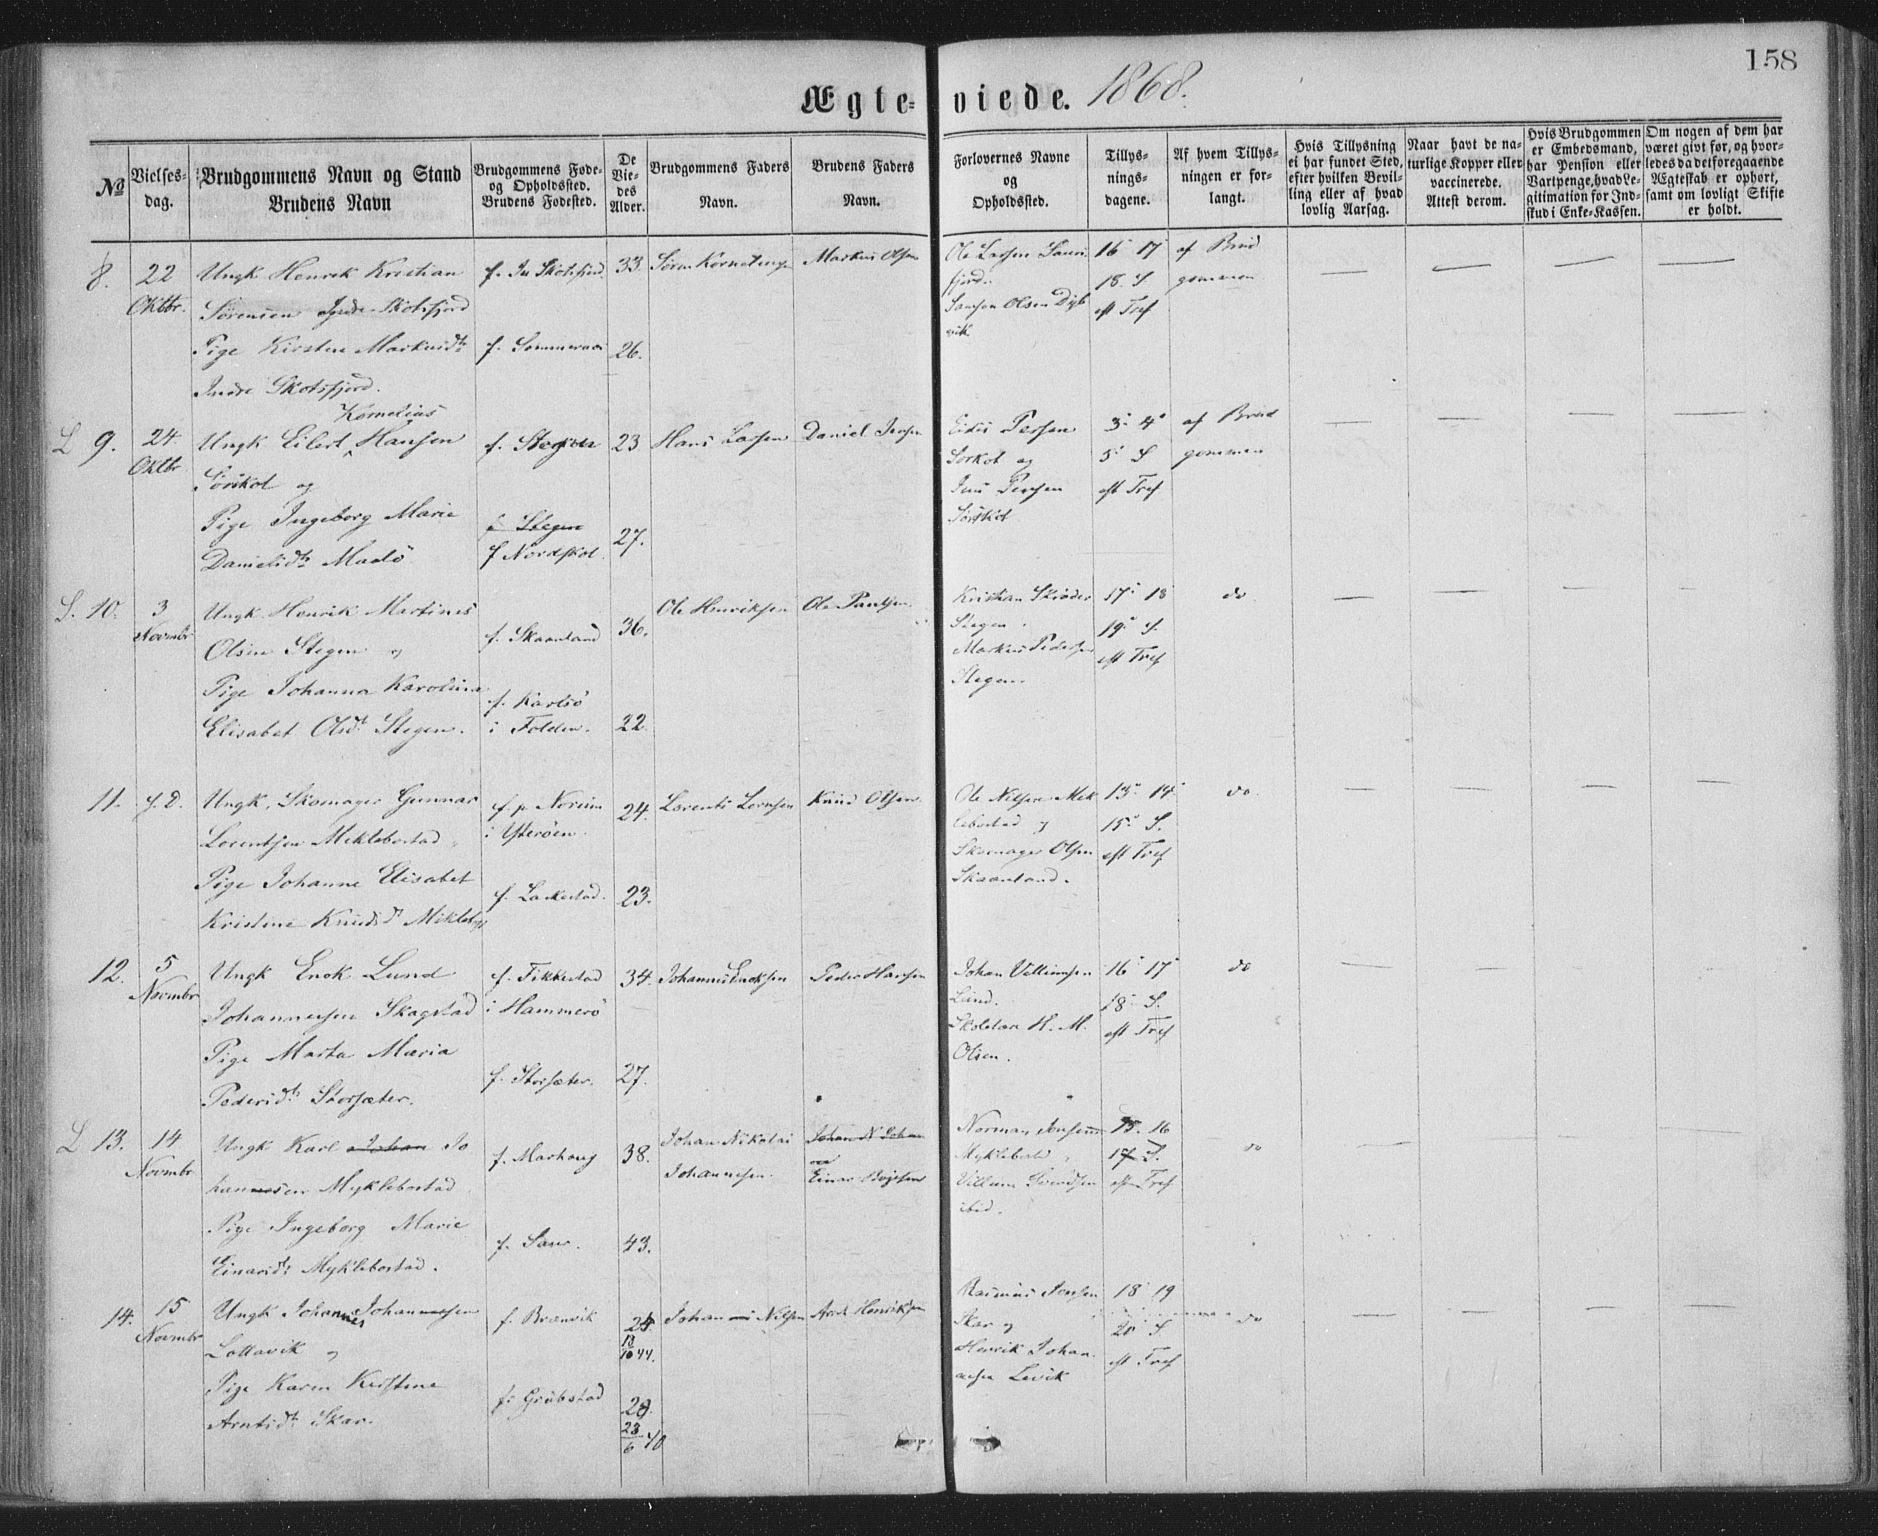 158
Ægte-viede. 1868.
No
Vielses-dag.
Brudgommens Navn og Stand
Brudens Navn
Brudgommens Føde- og Opholdssted.
Brudens Fødested.
De Viedes Alder.
Brudgommens Faders Navn.
Brudens Faders Navn.
Forlovernes Navne og Opholdssted.
Tillysningsdagene.
Af hvem Tillysningen er forlangt.
Hvis Tillysning ei har fundet Sted, efter hvilken Bevilling eller af hvad lovlig Aarsag.
Naar havt de naturlige Kopper eller vaccinerede. Attest derom.
Hvis Brudgommen er Embedsmand, har Pension eller Vartpenge, hvad Legitimation for Indskud i Enke-Kassen.
Om nogen af dem har været givt før, og hvorledes da det foregaaende Ægteskab er ophørt, samt om lovligt Skifte er holdt.
8. 22 Oktbr.
Ungk Henrik Kristian
Sørensen Indre Skotsfjord
Pige Kirsten Markusdt
Indre Skotsfjord.
f. In Skotsfjord 33.
f. Sommernæs 26.
Søren Kornelius
Markus Olsen
Ole Larsen
fjord.
16 17
18. S
eft Tref
af Brudgommen
L 9. 24 Oktbr
Kornelius
Ungk Eilert Hansen
Sørskot og
Pige Ingeborg Marie
Danielsdt Maalö
f. Stegen 23
f. Stegen
f Nordskot. 27.
Hans Larsen
Daniel Jensen
Persen
Sørskot og
Jens Persen
Sørskot
3 4
5 S
eft Tref
af Brudgommen
S. 10. 3 Novmbr
Ungk Henrik Martines
Olsen Stegen og
Pige Johanna Karolina
Elisabet Olsdt Stegen.
f. Skaanland 36.
f. Karlsö
i Folden. 22.
Ole Henriksen
Ole Paulsen.
Kristian Skröder
Stegen
Markus Pedersen
Stegen.
17 18
19 S.
eft Tref
do
11. s. D.
Ungk, Skomager Gunnar
Lorentsen Meklebostad
Pige Johanne Elisabet
Kristine Knudsdt
i Ytterøen. 24.
23.
Lorents
Knud Olsen
Ole Nilsen Meklebostad og
Skomager Olsen
Skaanland.
13 14
15 S.
eft Tref
do.
12. 5 Novmbr
Ungk Enok Lund
Johannesen Skagstad
Pige Marta Maria
Pedersdt Storsæter.
f. Fikkestad
i Hammerö 34.
f. Storsæter. 27.
Johannes Enoksen
Peder Hansen
Johan Villumsen
Lund.
H. M.
Olsen.
16 17
18 S.
eft Tref
do
L 13. 14 Novmbr
Ungk Karl Johan Johannesen Myklebostad
Pige Ingeborg Marie
Einarsdt Myklebostad.
f. Marhaug 38.
43.
Johan Nikolai
Johannesen.
Einar
Norman Jensen
Myklebostad
Villum
ibid.
15. 16
17 S.
eft Tref
do
14. 15 Novmbr
Ungk Johannes Johannesen
og
Pige Karen Kristine
Arntsdt Skar.
f. Brænvik 24
13
10 44.
f. Gröbstad 28.
23
6 40
Johan Nilsen
Arnt Henriksen
Rasmus Jensen
Skar og
Henrik Johannesen Levik
18 19
20 S.
eft Tref
do